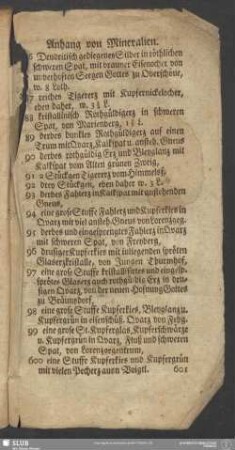 Anhang von Mineralien.
86 Dendritisch gediegenes Silber in röthlichen
schweren Spat, mit brauner Eisenocher von
unverhoften Seegen Gottes zu Oberschöne,
w. 8 Loth.
87 reiches Tigererz mit Kupfernickelocher,
eben daher, w. 3½ L.
88 kristallinisch Rothgüldigerz in schweren
Spat, von Marienberg, 1½ L.
89 derbes dunkles Rothgüldigerz auf einen
Trum mit Qvarz, Kalkspat u. ansteh. Gneus
90 derbes rothgüldig Erz und Bleyglanz mit
Kalkspat vom Alten grünen Zweig,
91 2 Stücken Tigererz vom Himmelsf.
92 drey Stücken, eben daher w. 3 L.
93 derbes Fahlerz in Kalkspat mit anstehenden
Gneus,
94 eine große Stuffe Fahlerz und Kupferkies in
Qvarz mit viel ansteh. Gneus von Lorenzgeg.
95 derbes und eingesprengtes Fahlerz in Qvarz
mit schweren Spat, von Freyberg,
96 drusiger Kupferkies mit inliegenden spröten
Glaserzkristalle, von Jungen Thurmhof,
97 eine große Stuffe kristallisirtes und eingesp.
sprötes Glaserz auch rothgüldig Erz in dru-
sigen Qvarz, von der neuen Hofnung Gottes
zu Bräunsdorf,
98 eine große Stuffe Kupferkies, Bleyglanz u.
Kupfergrün in eisenschüß. Qvarz von Frbg.
99 eine große St. Kupferglas, Kupferschwärze
u. Kupfergrün in Qvarz, Fluß und schweren
Spat, von Lorenzgegentrum,
600 eine Stuffe Kupferkies und Kupfergrün
mit vielen Pecherz aus n Voigtl.
601
SLUB